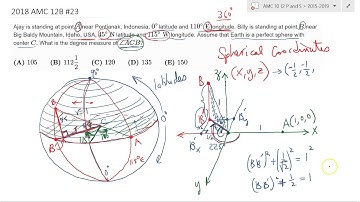 2018 AMC 12B #23
360°
AMC 10 12 P and S > 2015-2019
Ajay is standing at point A near Pontianak, Indonesia, 0° latitude and 110° E longitude. Billy is standing at point B near
Big Baldy Mountain, Idaho, USA, 45° N latitude and 115° W longitude. Assume that Earth is a perfect sphere with
center C. What is the degree measure of ∠ACB?
Spherical Coordinates
(A) 105 (B) 112½ (C) 120 (D) 135 (E) 150
(x, y, z) → (-½, -½,
latitudes
B
B'
A
0°
115°E
B
B'
A(1,0,0)
1
X
y
225°
(BB')² + (1/√2)² = 1²
(BB')² + ½ = 1